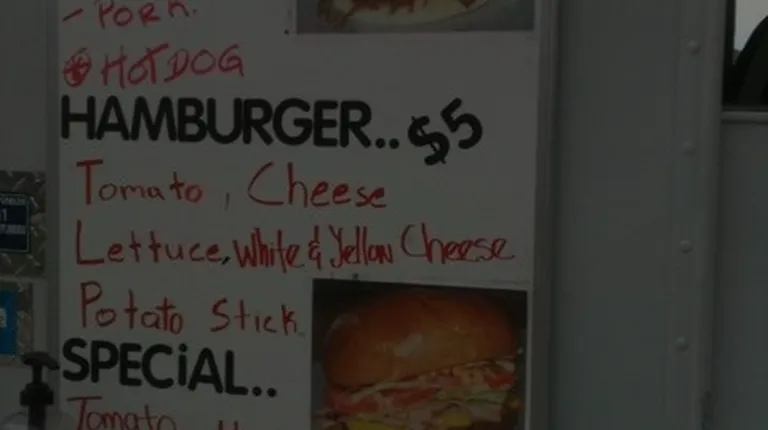 - PORK.
HOTDOG
HAMBURGER..$5
Tomato, Cheese
Lettuce, White & Yellow Cheese
Potato Stick
SPECiAL..
Tomato